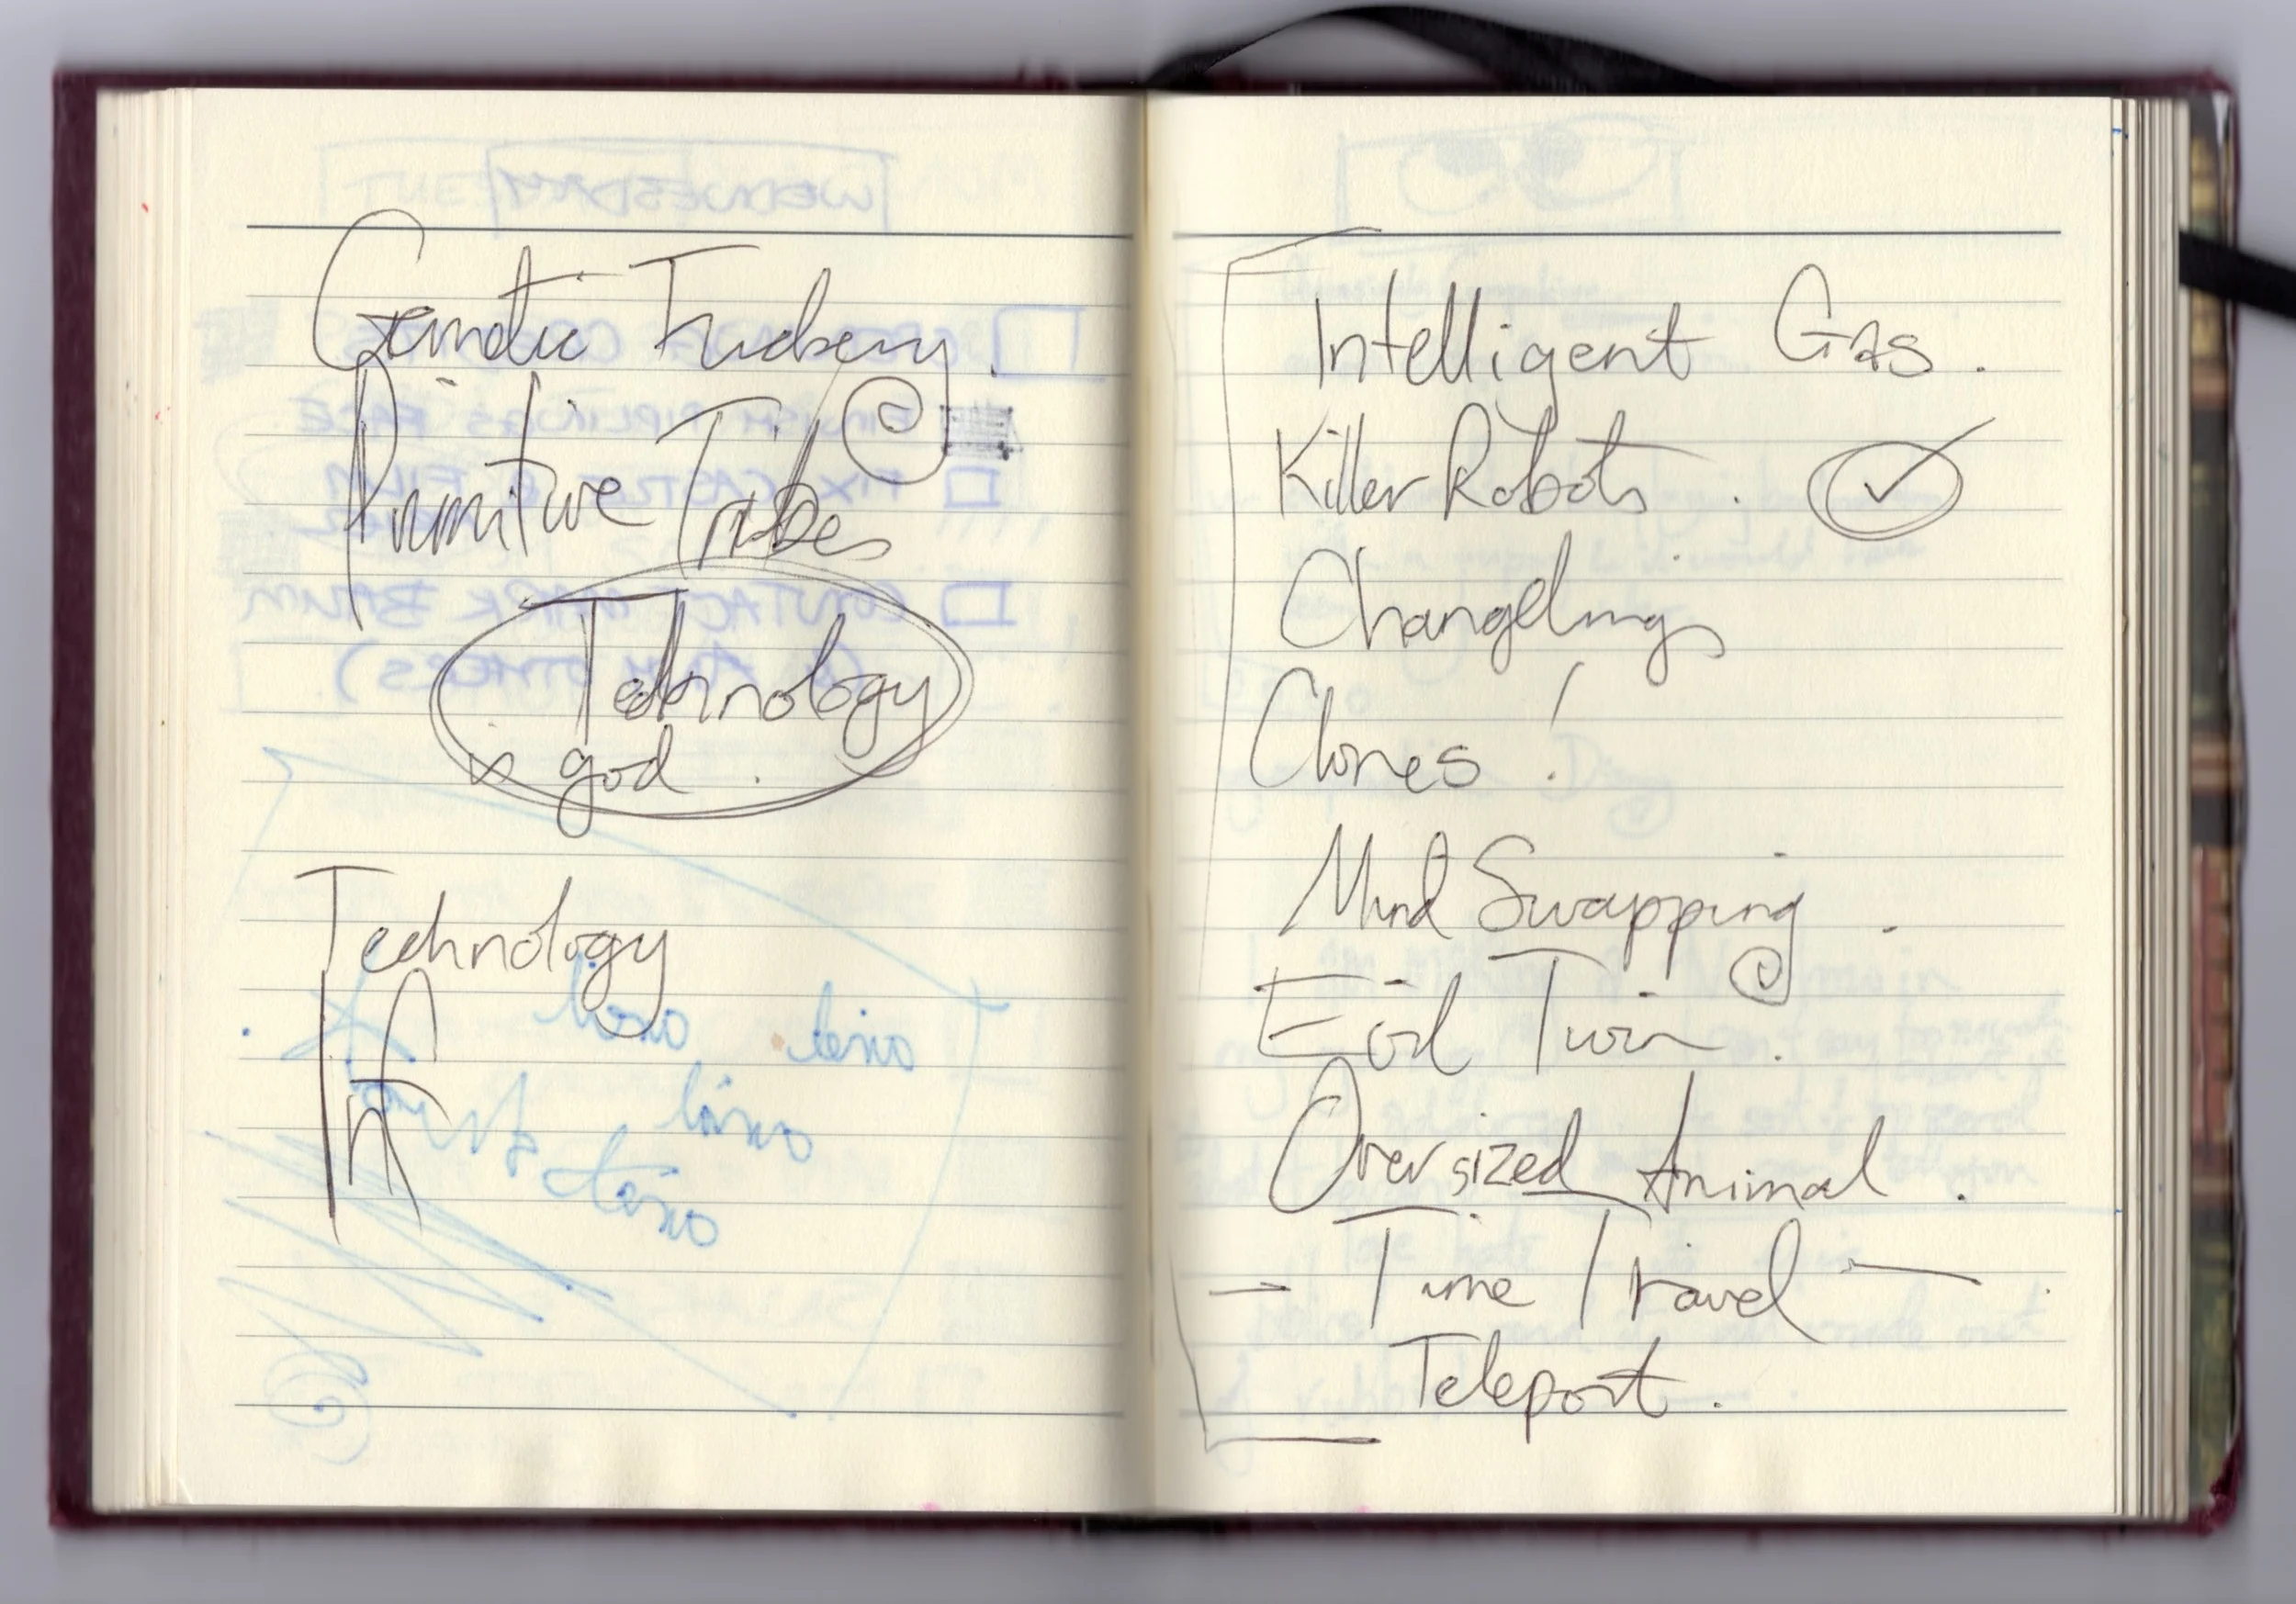 Genetic Trickery.
Primitive Tribes
Technology
is god.
Technology
Inf
Intelligent Gas.
Killer Robots. ✓
Changelings
Clones!
Mind Swapping.
Evil Twin.
Oversized Animal.
- Time Travel -
Teleport.
WEDNESDAY